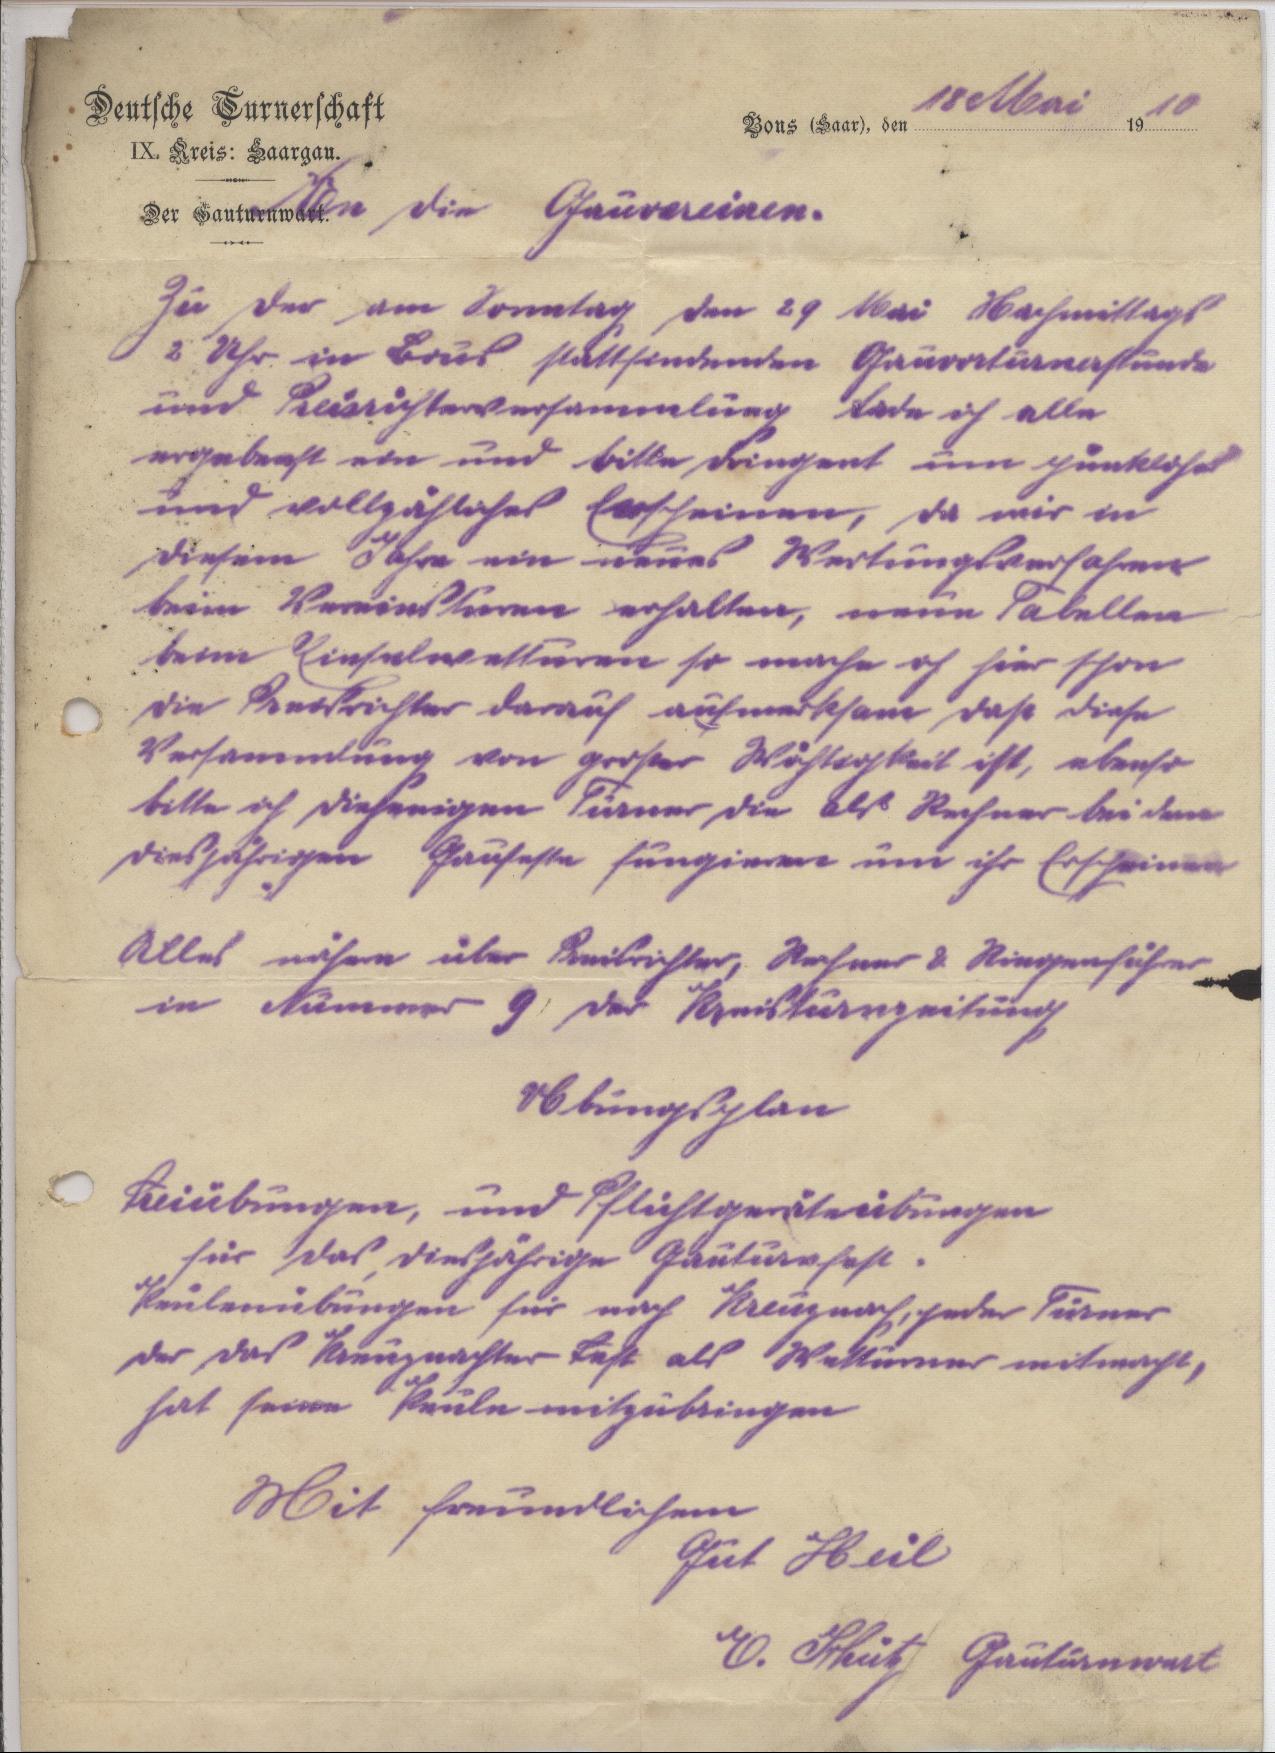 Deutsche Turnerschaft
IX. Kreis: Saargau.
Der Gauturnwart.
Bous (Saar), den 18 Mai 1910
An die Gauvereinen.
Zu der am Sonntag den 29 Mai Nachmittags
2 Uhr in Bous stattfindenden Gauvorturnerstunde
und Preisrichterversammlung lade ich alle
ergebenst ein und bitte dringent um pünkliches
und vollzähliches Erscheinen, da wir in
diesem Jahre ein neues Wertungsverfahren
beim Vereinsturen erhalten, neue Tabellen
beim Einselwetturen so mache ich hier schon
die Preisrichter darauf aufmerksam daß diese
Versammlung von großer Wichtigkeit ist, ebenso
bitte ich diejenigen Turner die als Rechner bei dem
diesjährigen Gaufeste fungieren um ihr Erscheinen
Alles nähere über Preisrichter, Rechner & Riegenführer
in Nummer 9 der Kreisturnzeitung
Übungsplan
Freiübungen, und Pflichtgeräteübungen
für das diesjährige Gauturnfest.
Keulenübungen für nach Kreuznach, jeder Turner
der das Kreuznachter Fest als Wetturner mitmacht,
hat seine Keule mitzubringen
Mit freundlichem
Gut Heil
Gauturnwart